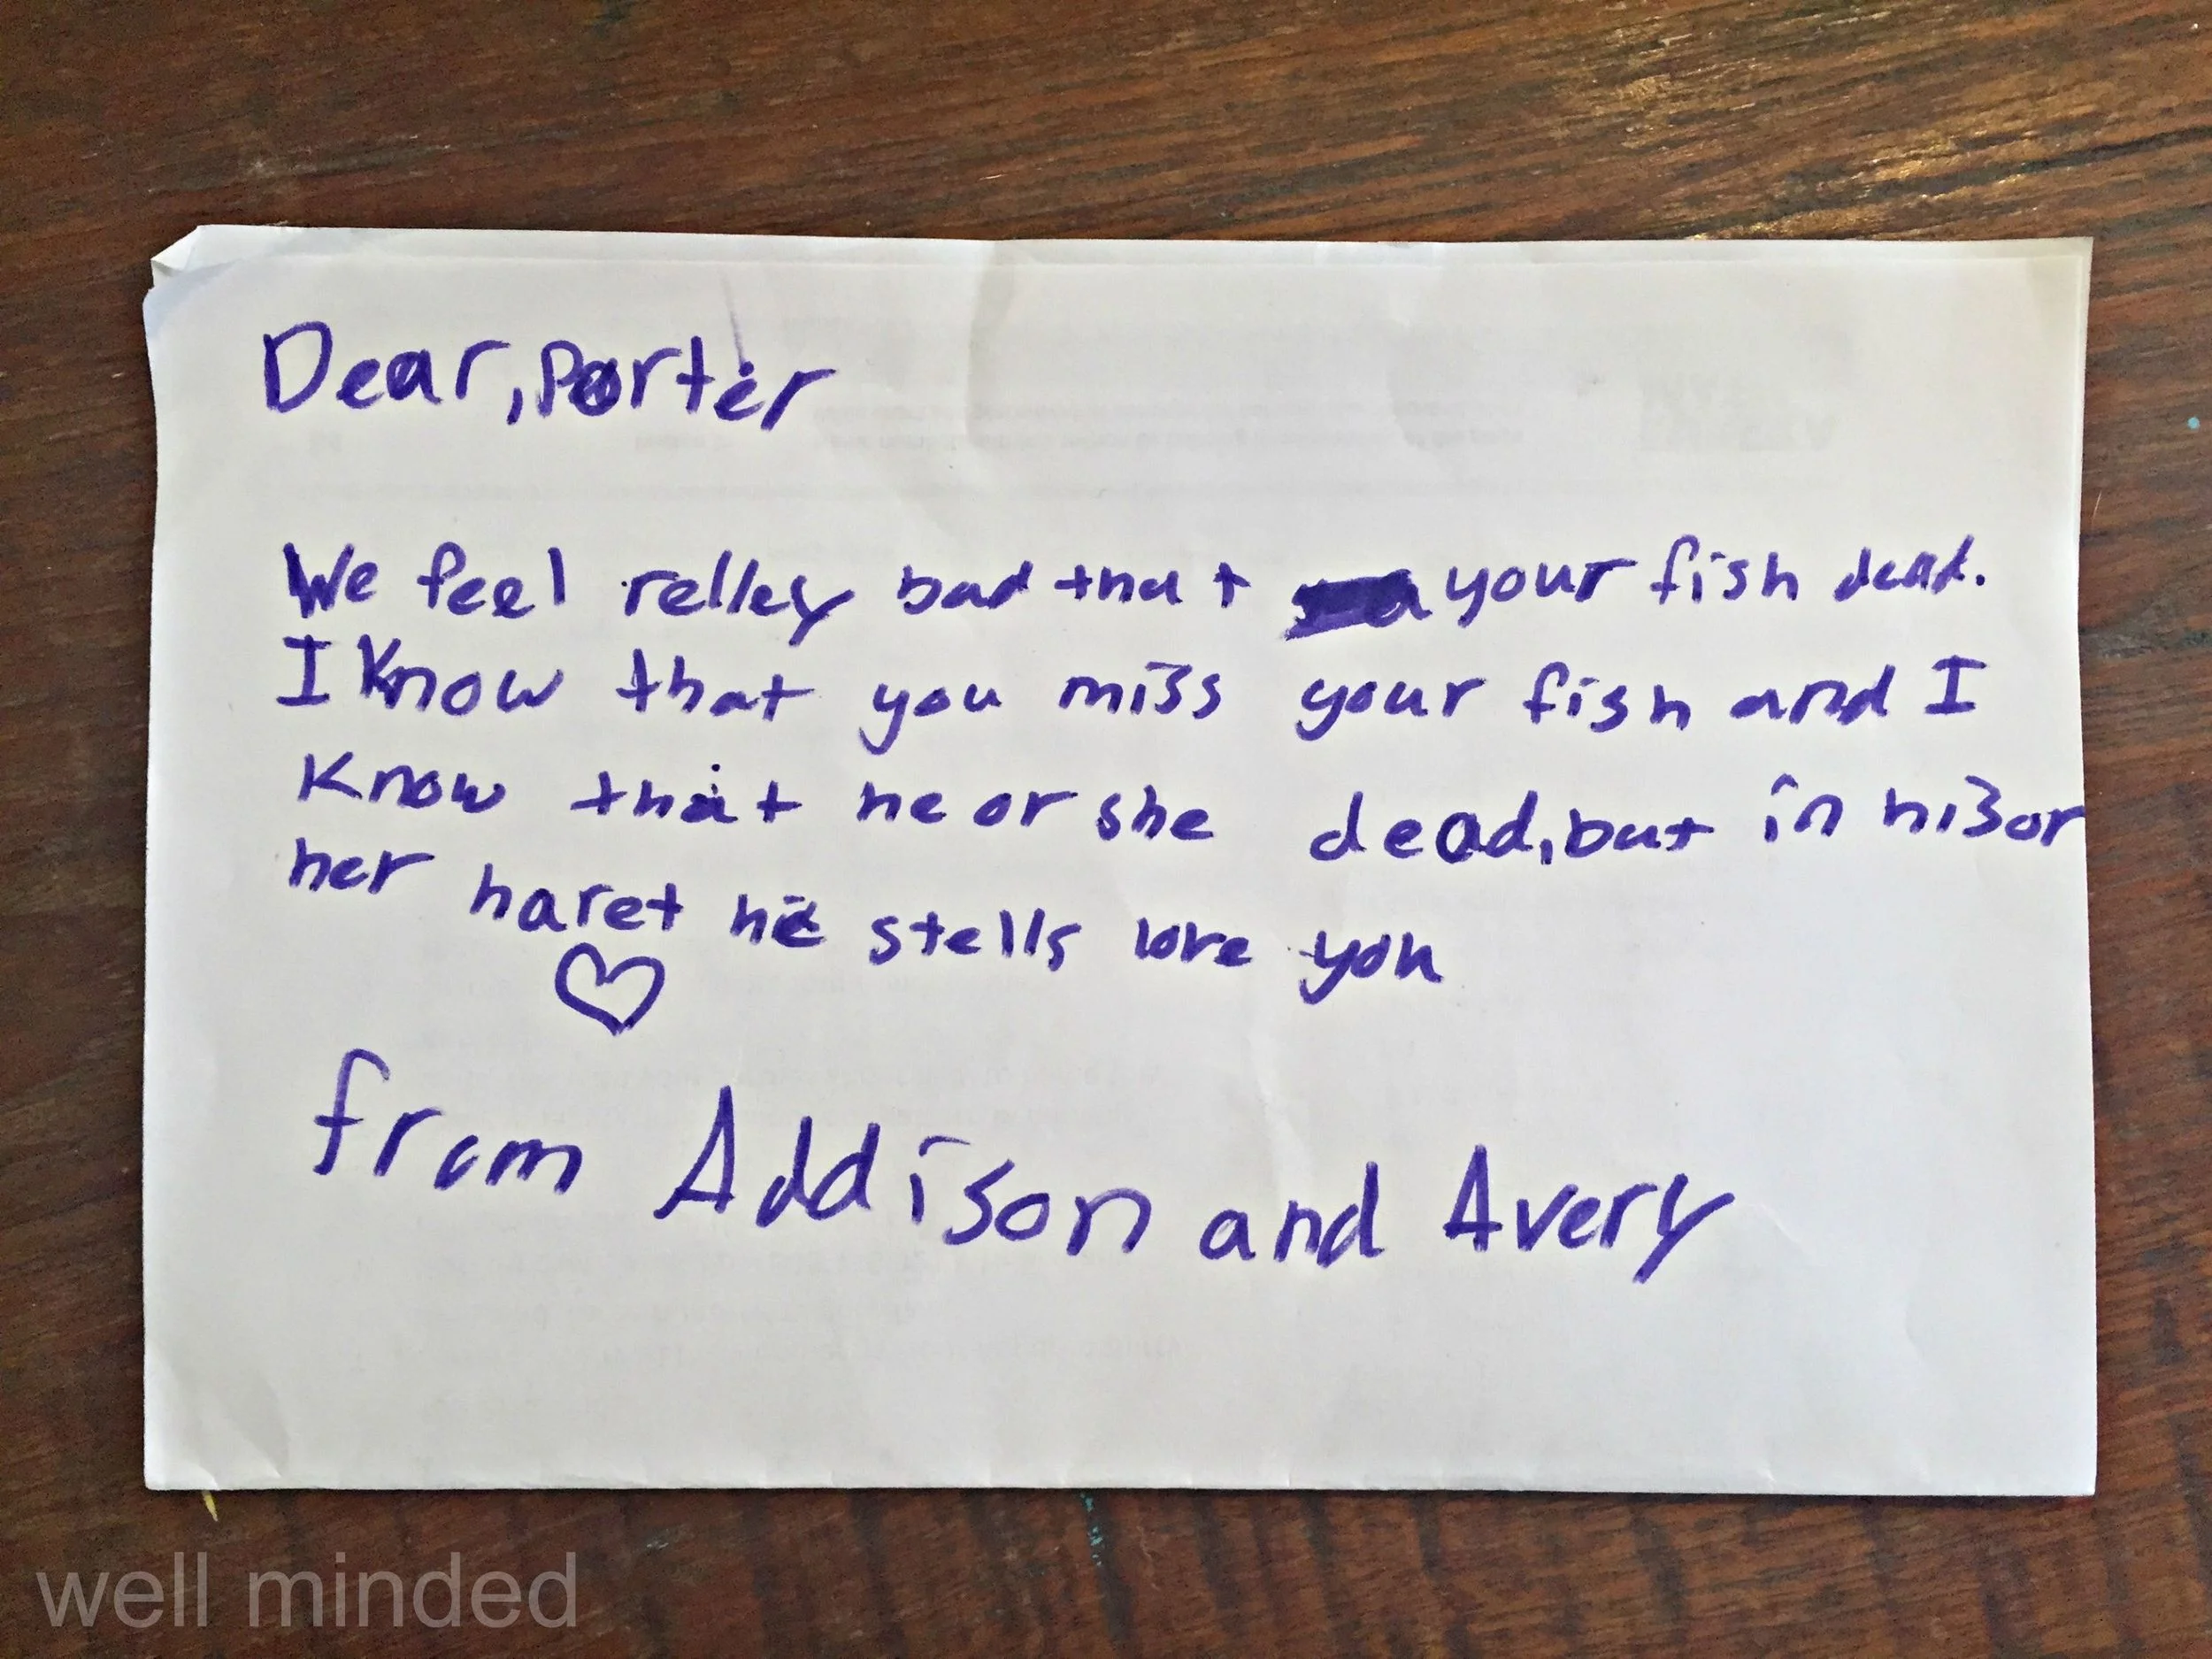 Dear, Porter
We feel relley bad that your fish dead.
I know that you miss your fish and I
know that he or she dead, but in his or
her haret he stells love you
from Addison and Avery
well minded